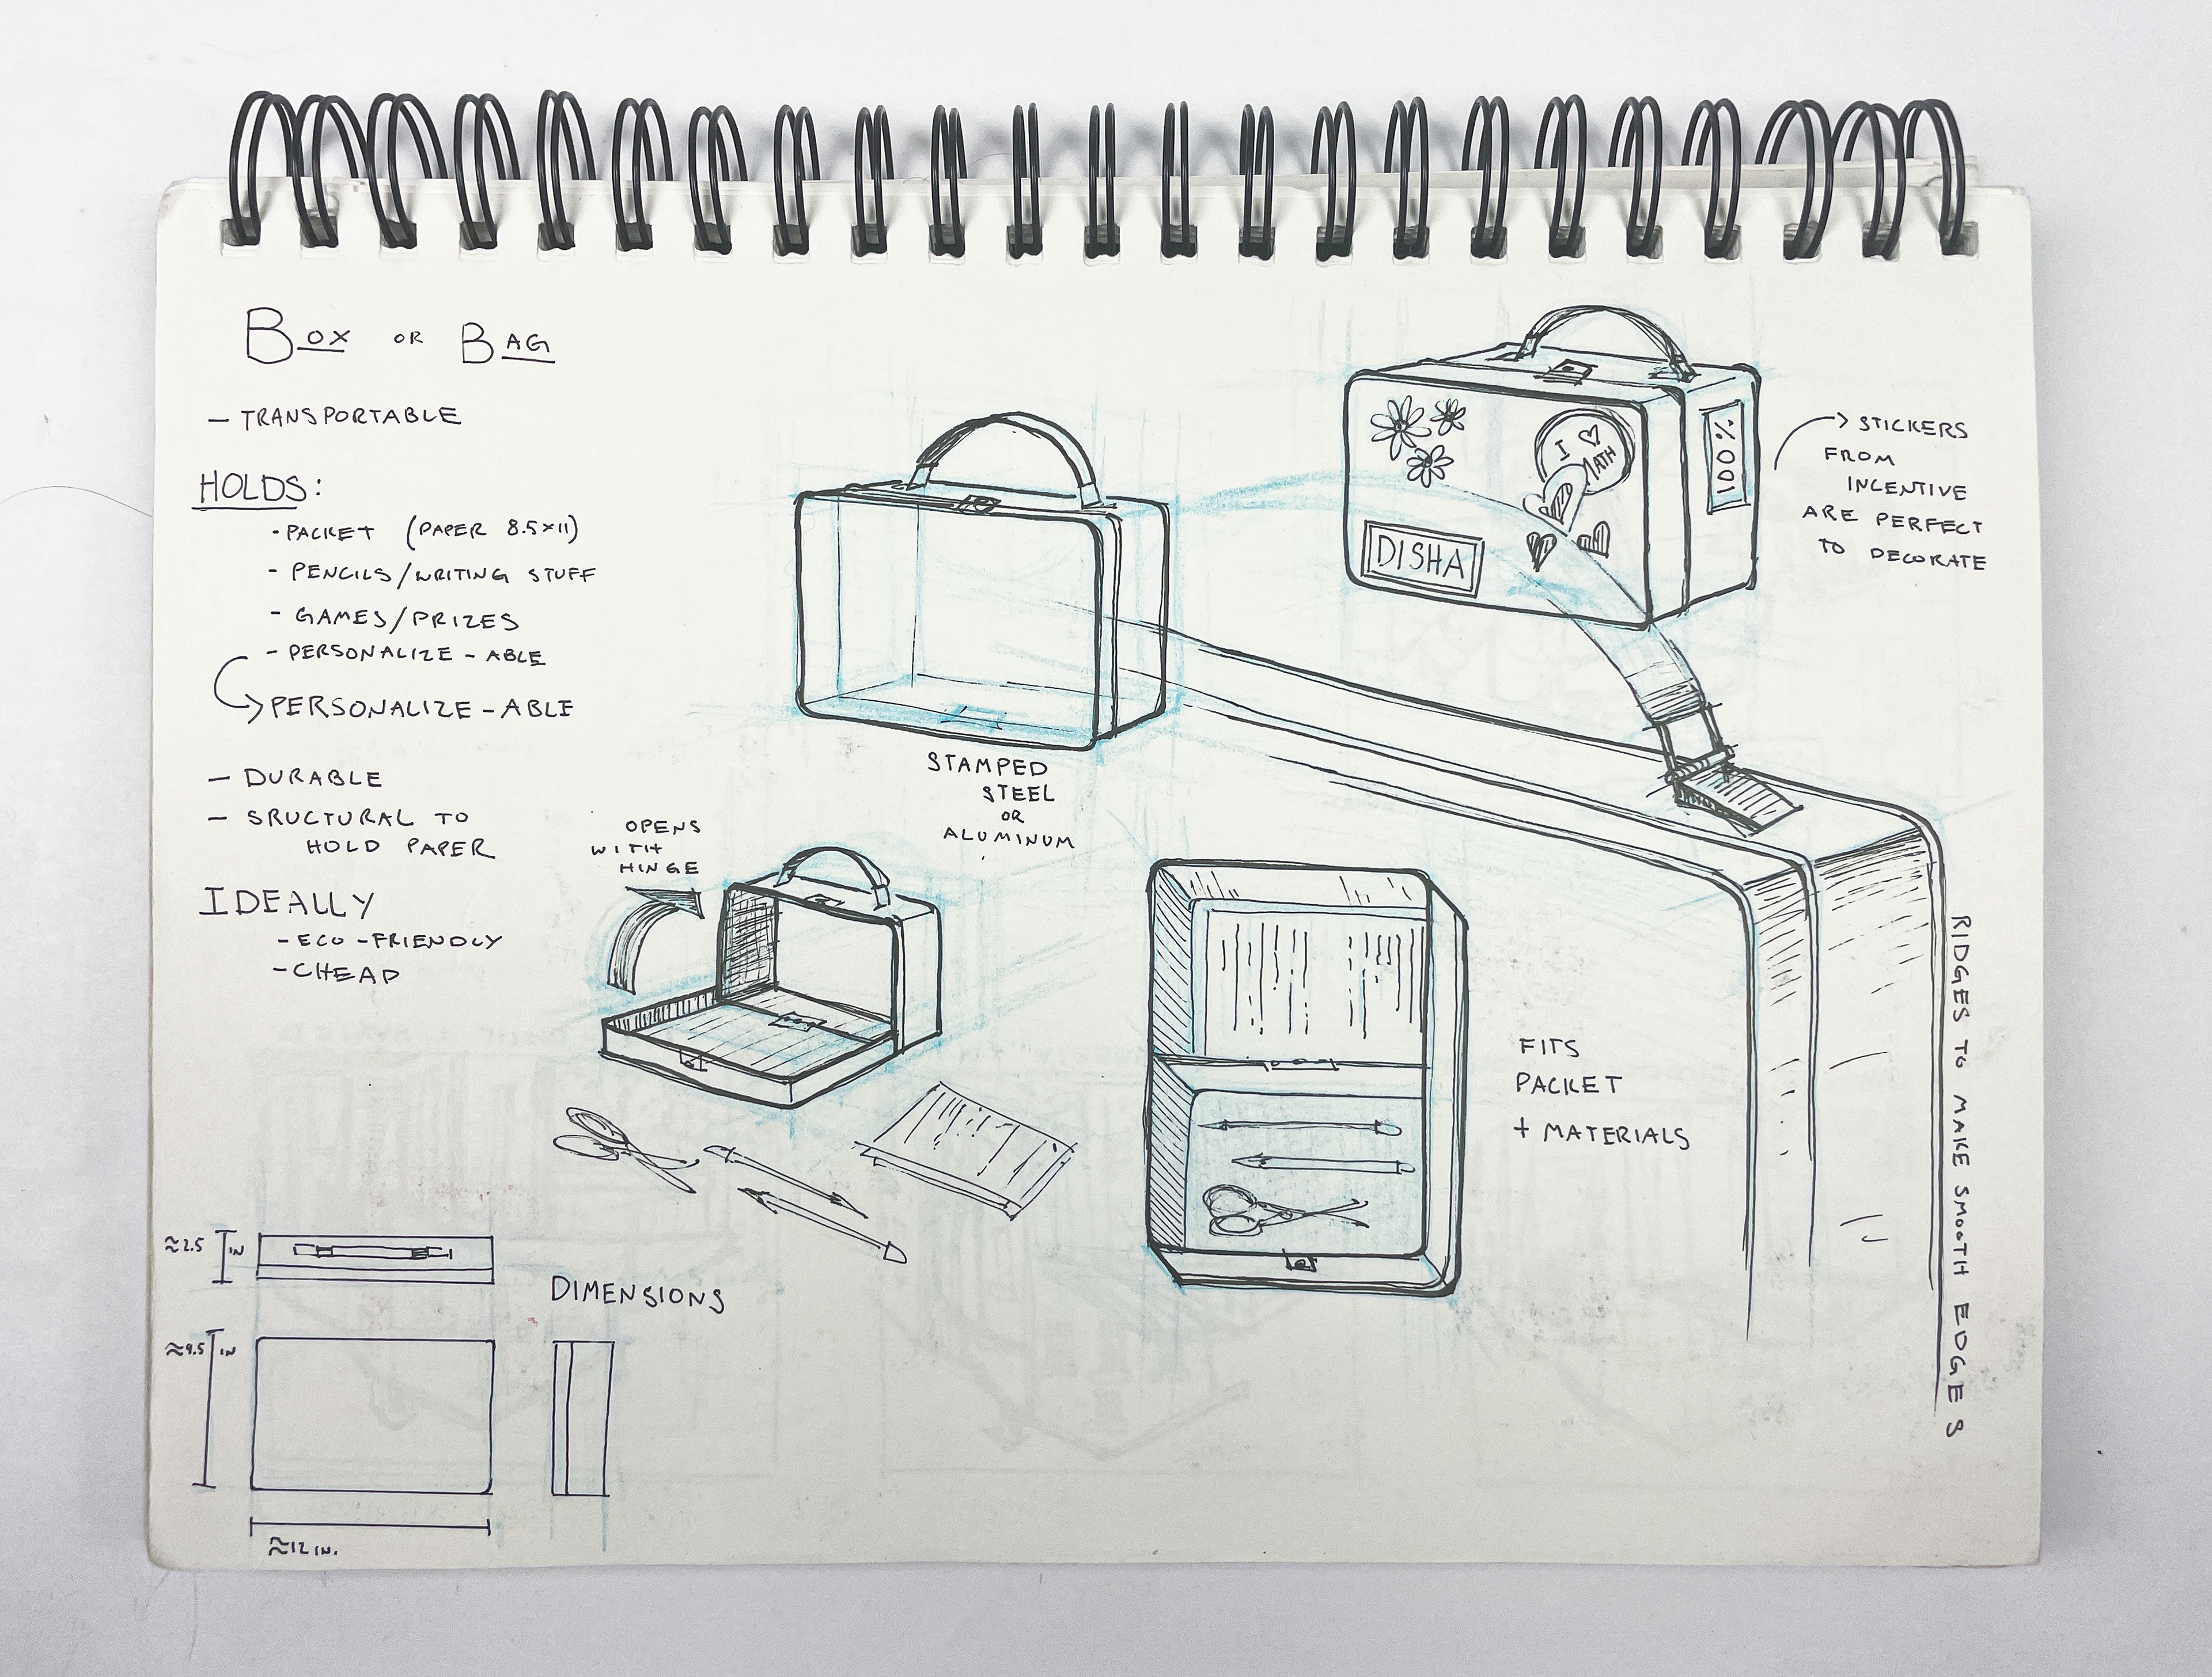 BOX OR BAG
- TRANSPORTABLE
HOLDS:
- PACKET (PAPER 8.5×11)
- PENCILS/WRITING STUFF
- GAMES/PRIZES
- PERSONALIZE-ABLE
PERSONALIZE-ABLE
- DURABLE
- SRUCTURAL TO
HOLD PAPER
IDEALLY
- ECO-FRIENDLY
- CHEAP
STAMPED
STEEL
OR
ALUMINUM
I ♡
MATH
100%
DISHA
STICKERS
FROM
INCENTIVE
ARE PERFECT
TO DECORATE
OPENS
WITH
HINGE
FITS
PACKET
+ MATERIALS
RIDGES TO MAKE SMOOTH EDGES
≈2.5 IN
DIMENSIONS
≈9.5 IN
≈12 IN.